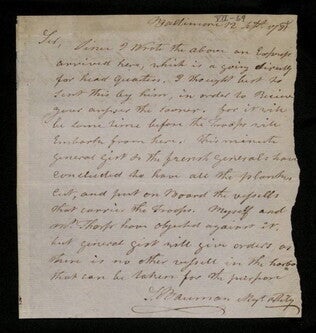 VII-59
Baltimore 12 Sept. 1781
Sir,
Since I wrote the above an Express
arrived here, which is a going directly
for head Quarters. I thought best to
sent this by him, in order to Recieve
your answer the sooner. For it will
be some time before the Troops will
Embark from here. This minute
General Gist & the french Generals have
concluded to have all the
Cut, and put on Board the vessells
that carries the Troops. Myself and
Mr. Tharp have objected against it,
but general gist will give orders as
there is no other vessell in the harbor
that can be taken for the purpose
S Bauman Majr Artily